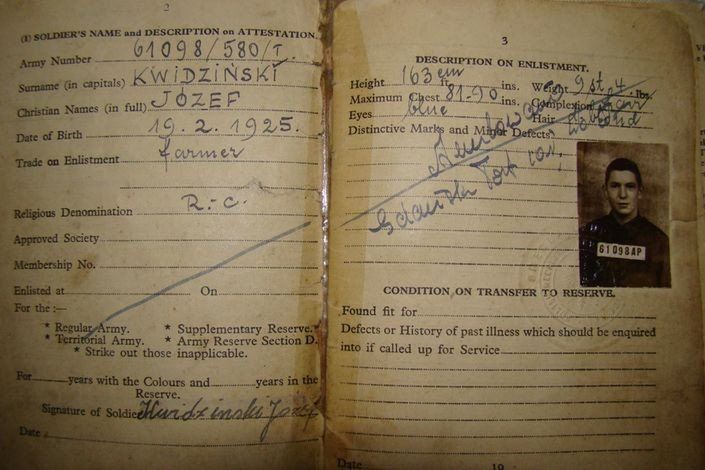 2
(1) SOLDIER'S NAME and DESCRIPTION on ATTESTATION.
Army Number 61098/580/T.
Surname (in capitals) KWIDZIŃSKI
Christian Names (in full) JÓZEF
Date of Birth 19. 2. 1925.
Trade on Enlistment farmer
Religious Denomination R.-c.
Approved Society
Membership No.
Enlisted at On
For the :—
* Regular Army. * Supplementary Reserve.
* Territorial Army. * Army Reserve Section D.
* Strike out those inapplicable.
For years with the Colours and years in the
Reserve.
Signature of Soldier Kwidzinski Jozef
Date
3
DESCRIPTION ON ENLISTMENT.
Height 163 cm ft. ins. Weight 9 st. 4 lbs.
Maximum Chest 81-90 ins. Complexion
Eyes blue Hair
Distinctive Marks and Minor Defects
61098AP
CONDITION ON TRANSFER TO RESERVE.
Found fit for
Defects or History of past illness which should be enquired
into if called up for Service
Date 19